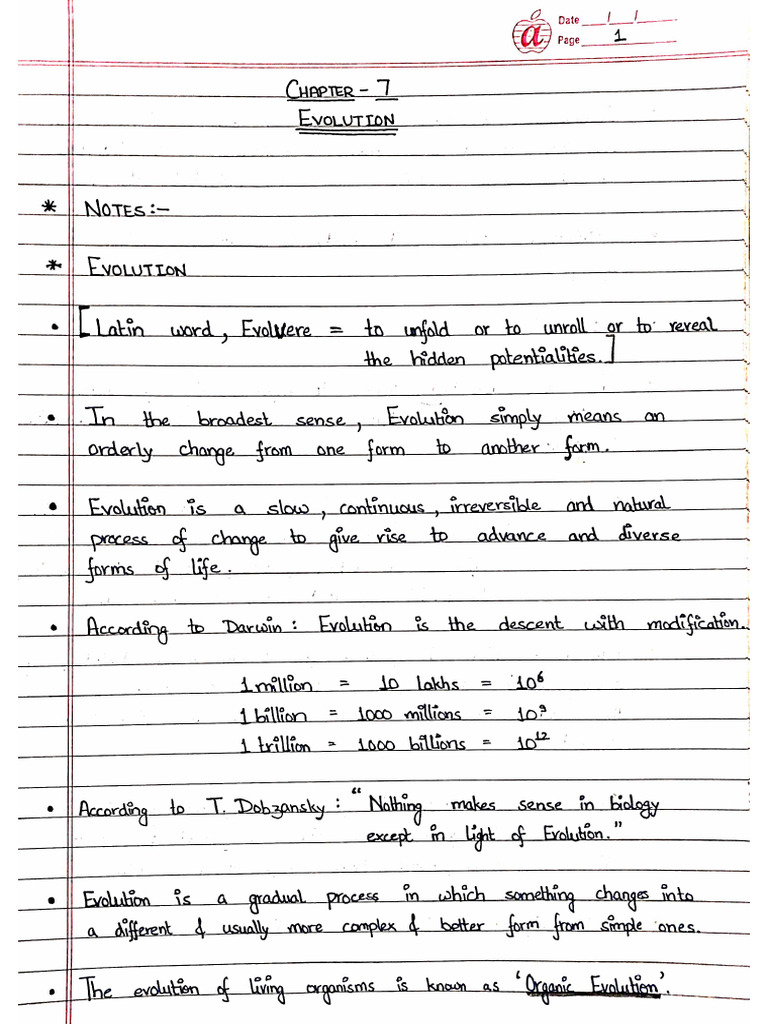 Date __/__/__
Page 1
CHAPTER - 7
EVOLUTION
* NOTES:-
* EVOLUTION
• [Latin word, Evolvere = to unfold or to unroll or to reveal
the hidden potentialities.]
• In the broadest sense, Evolution simply means an
orderly change from one form to another form.
• Evolution is a slow, continuous, irreversible and natural
process of change to give rise to advance and diverse
forms of life.
• According to Darwin: Evolution is the descent with modification.
1 million = 10 lakhs = 10⁶
1 billion = 1000 millions = 10⁹
1 trillion = 1000 billions = 10¹²
• According to T. Dobzansky: "Nothing makes sense in biology
except in light of Evolution."
• Evolution is a gradual process in which something changes into
a different & usually more complex & better form from simple ones.
• The evolution of living organisms is known as 'Organic Evolution'.